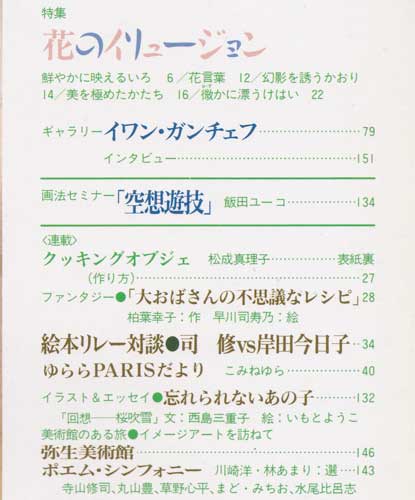 特集
花のイリュージョン
鮮やかに映えるいろ 6／花言葉 12／幻影を誘うかおり
14／美を極めたかたち 16／微かに漂うけはい 22
ギャラリー イワン・ガンチェフ……79
インタビュー……151
画法セミナー「空想遊技」 飯田ユーコ……134
〈連載〉
クッキングオブジェ 松成真理子……表紙裏
（作り方）……27
ファンタジー●「大おばさんの不思議なレシピ」28
柏葉幸子：作 早川司寿乃：絵
絵本リレー対談●司 修vs岸田今日子…34
ゆららPARISだより こみねゆら……40
イラスト＆エッセイ●忘れられないあの子……132
「回想──桜吹雪」文：西島三重子 絵：いもとようこ
美術館のある旅●イメージアートを訪ねて
弥生美術館……146
ポエム・シンフォニー 川崎洋・林あまり：選…143
寺山修司、丸山豊、草野心平、まど・みちお、水尾比呂志